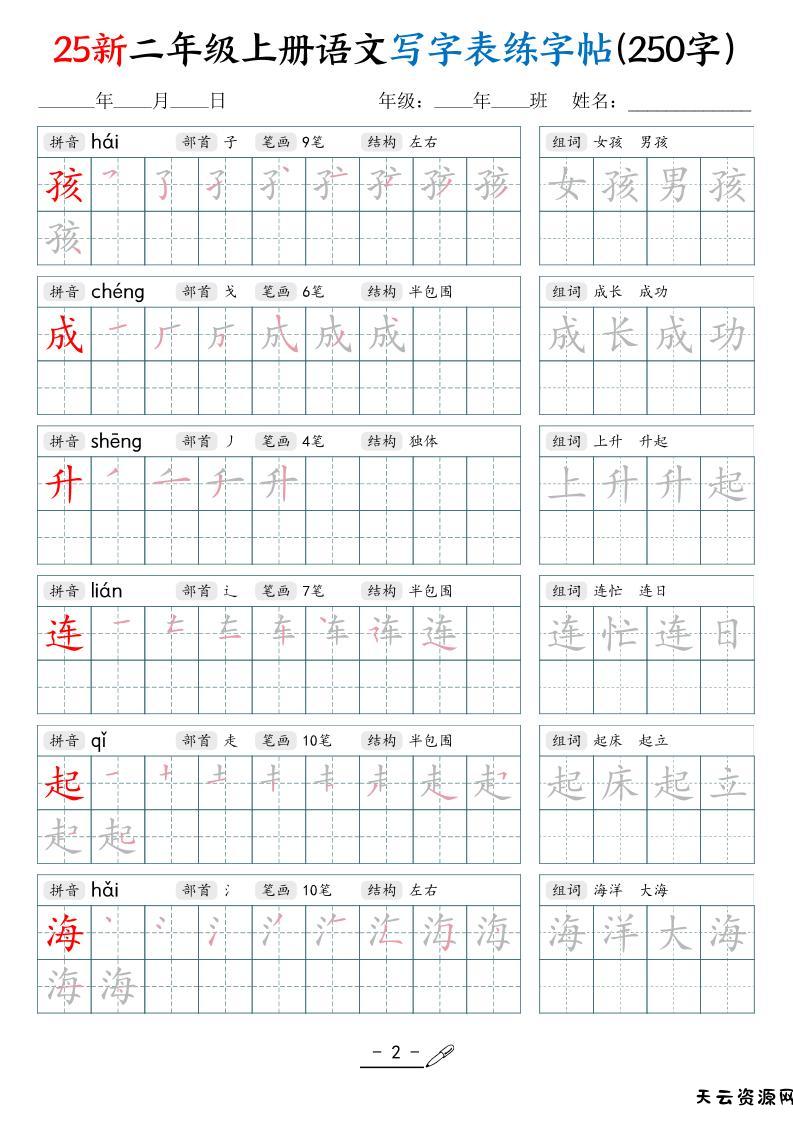 25新二年级上册语文写字表练字帖(250字)
______年____月____日 年级：____年____班 姓名：____________
拼音 hái 部首 子 笔画 9笔 结构 左右 组词 女孩 男孩
孩 女孩男孩
孩
拼音 chéng 部首 戈 笔画 6笔 结构 半包围 组词 成长 成功
成 成长成功
拼音 shēng 部首 丿 笔画 4笔 结构 独体 组词 上升 升起
升 上升升起
拼音 lián 部首 辶 笔画 7笔 结构 半包围 组词 连忙 连日
连 连忙连日
拼音 qǐ 部首 走 笔画 10笔 结构 半包围 组词 起床 起立
起 起床起立
起起
拼音 hǎi 部首 氵 笔画 10笔 结构 左右 组词 海洋 大海
海 海洋大海
海海
- 2 -
天云资源网